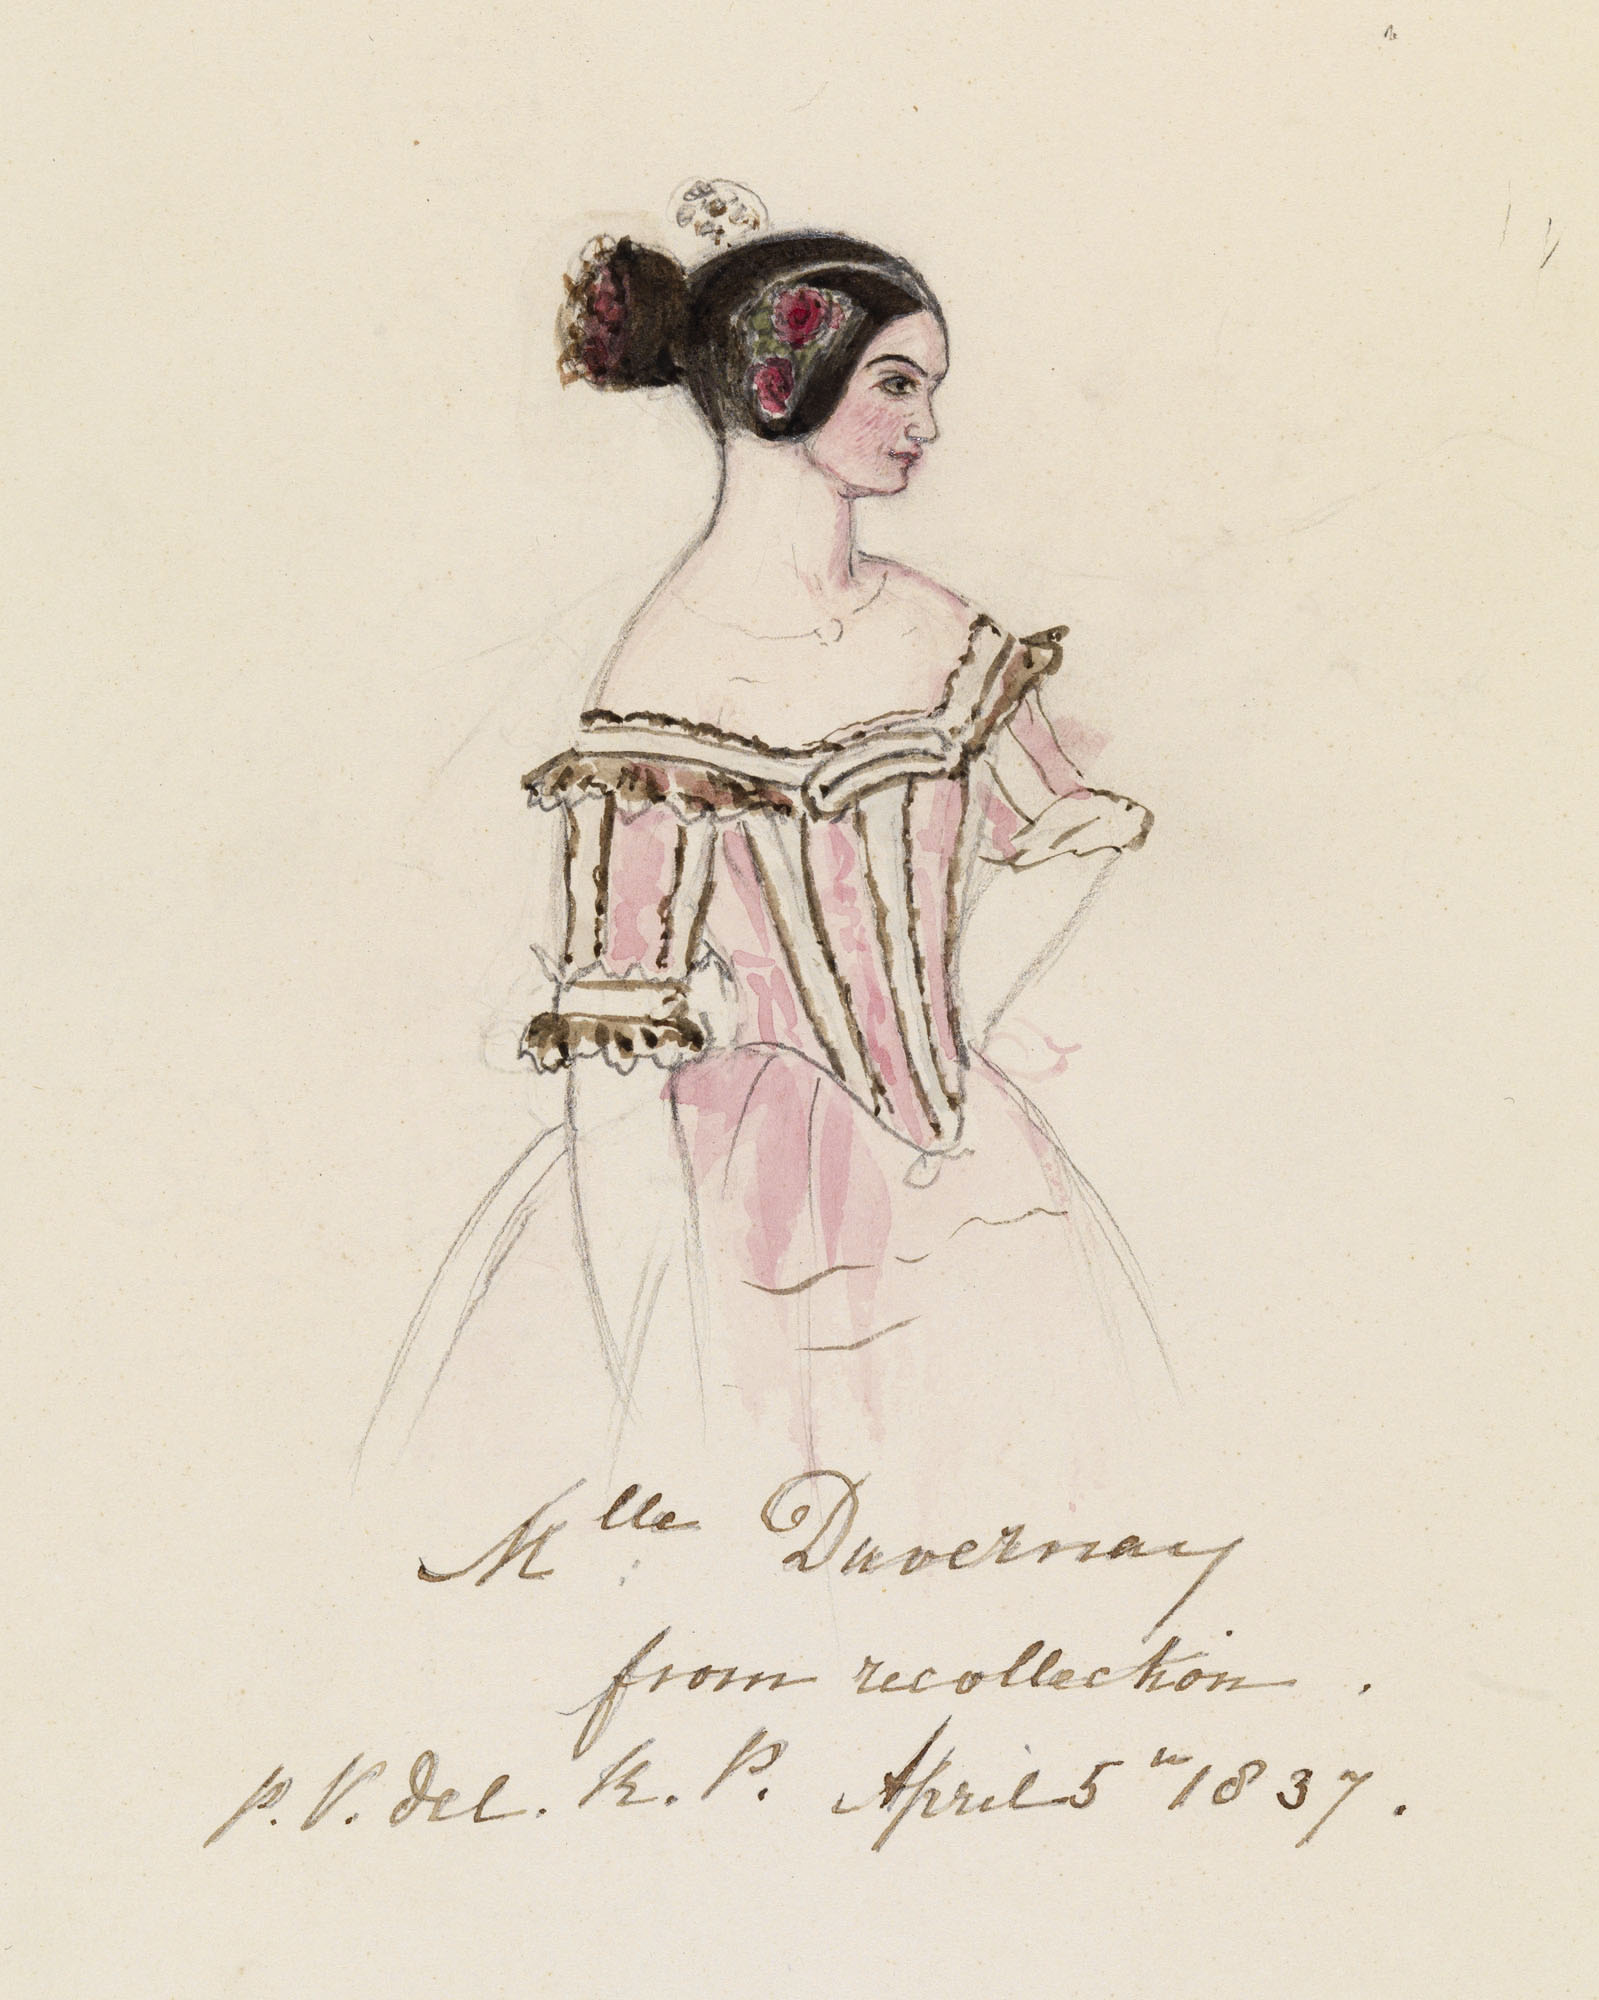 Mlle Duvernay
from recollection.
P.V. del. K.P. April 5th 1837.